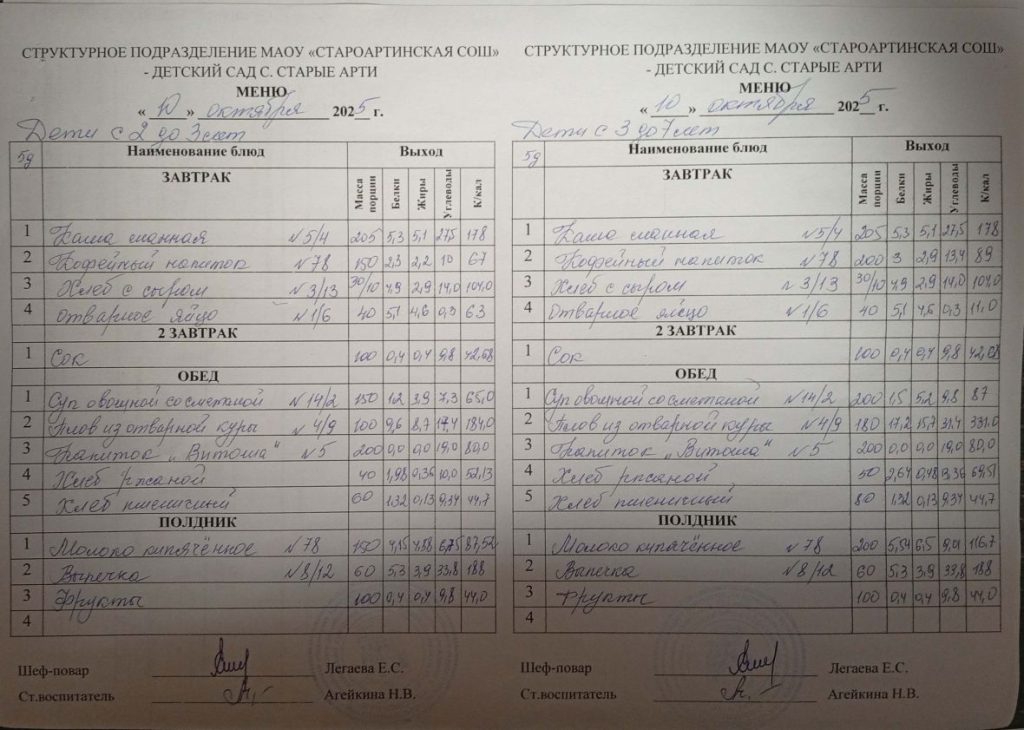 СТРУКТУРНОЕ ПОДРАЗДЕЛЕНИЕ МАОУ «СТАРОАРТИНСКАЯ СОШ»
- ДЕТСКИЙ САД С. СТАРЫЕ АРТИ
МЕНЮ
« 10 » октября 2025 г.
Дети с 2 до 3 лет
5д Наименование блюд Выход
ЗАВТРАК Масса порции Белки Жиры Углеводы К/кал
1 Каша манная №5/4 205 5,3 5,1 27,5 178
2 Кофейный напиток №78 150 2,3 2,2 10 67
3 Хлеб с сыром №3/13 30/10 4,9 2,9 14,0 104,0
4 Отварное яйцо №1/6 40 5,1 4,6 0,3 63
2 ЗАВТРАК
1 Сок 100 0,4 0,4 9,8 42,68
ОБЕД
1 Суп овощной со сметаной №14/2 150 1,2 3,9 7,3 65,0
2 Плов из отварной куры №4/9 100 9,6 8,7 17,4 184,0
3 Напиток „Витоша" №5 200 0,0 0,0 19,0 80,0
4 Хлеб ржаной 40 1,98 0,36 10,0 52,13
5 Хлеб пшеничный 60 1,32 0,13 9,34 44,7
ПОЛДНИК
1 Молоко кипячённое №78 150 4,15 4,88 6,75 87,52
2 Выпечка №8/12 60 5,3 3,9 33,8 188
3 Фрукты 100 0,4 0,4 9,8 44,0
4
Шеф-повар Легаева Е.С.
Ст.воспитатель Агейкина Н.В.
СТРУКТУРНОЕ ПОДРАЗДЕЛЕНИЕ МАОУ «СТАРОАРТИНСКАЯ СОШ»
- ДЕТСКИЙ САД С. СТАРЫЕ АРТИ
МЕНЮ
« 10 » октября 2025 г.
Дети с 3 до 7 лет
5д Наименование блюд Выход
ЗАВТРАК Масса порции Белки Жиры Углеводы К/кал
1 Каша манная №5/4 205 5,3 5,1 27,5 178
2 Кофейный напиток №78 200 3 2,9 13,4 89
3 Хлеб с сыром №3/13 30/10 4,9 2,9 14,0 104,0
4 Отварное яйцо №1/6 40 5,1 4,6 0,3 11,0
2 ЗАВТРАК
1 Сок 100 0,4 0,4 9,8 42,68
ОБЕД
1 Суп овощной со сметаной №14/2 200 1,5 5,2 9,8 87
2 Плов из отварной куры №4/9 180 17,2 15,7 31,4 331,0
3 Напиток „Витоша" №5 200 0,0 0,0 19,0 80,0
4 Хлеб ржаной 50 2,64 0,48 69,51
5 Хлеб пшеничный 80 1,32 0,13 9,34 44,7
ПОЛДНИК
1 Молоко кипячённое №78 200 5,54 6,5 9,01 116,7
2 Выпечка №8/12 60 5,3 3,9 33,8 188
3 Фрукты 100 0,4 0,4 9,8 44,0
4
Шеф-повар Легаева Е.С.
Ст.воспитатель Агейкина Н.В.